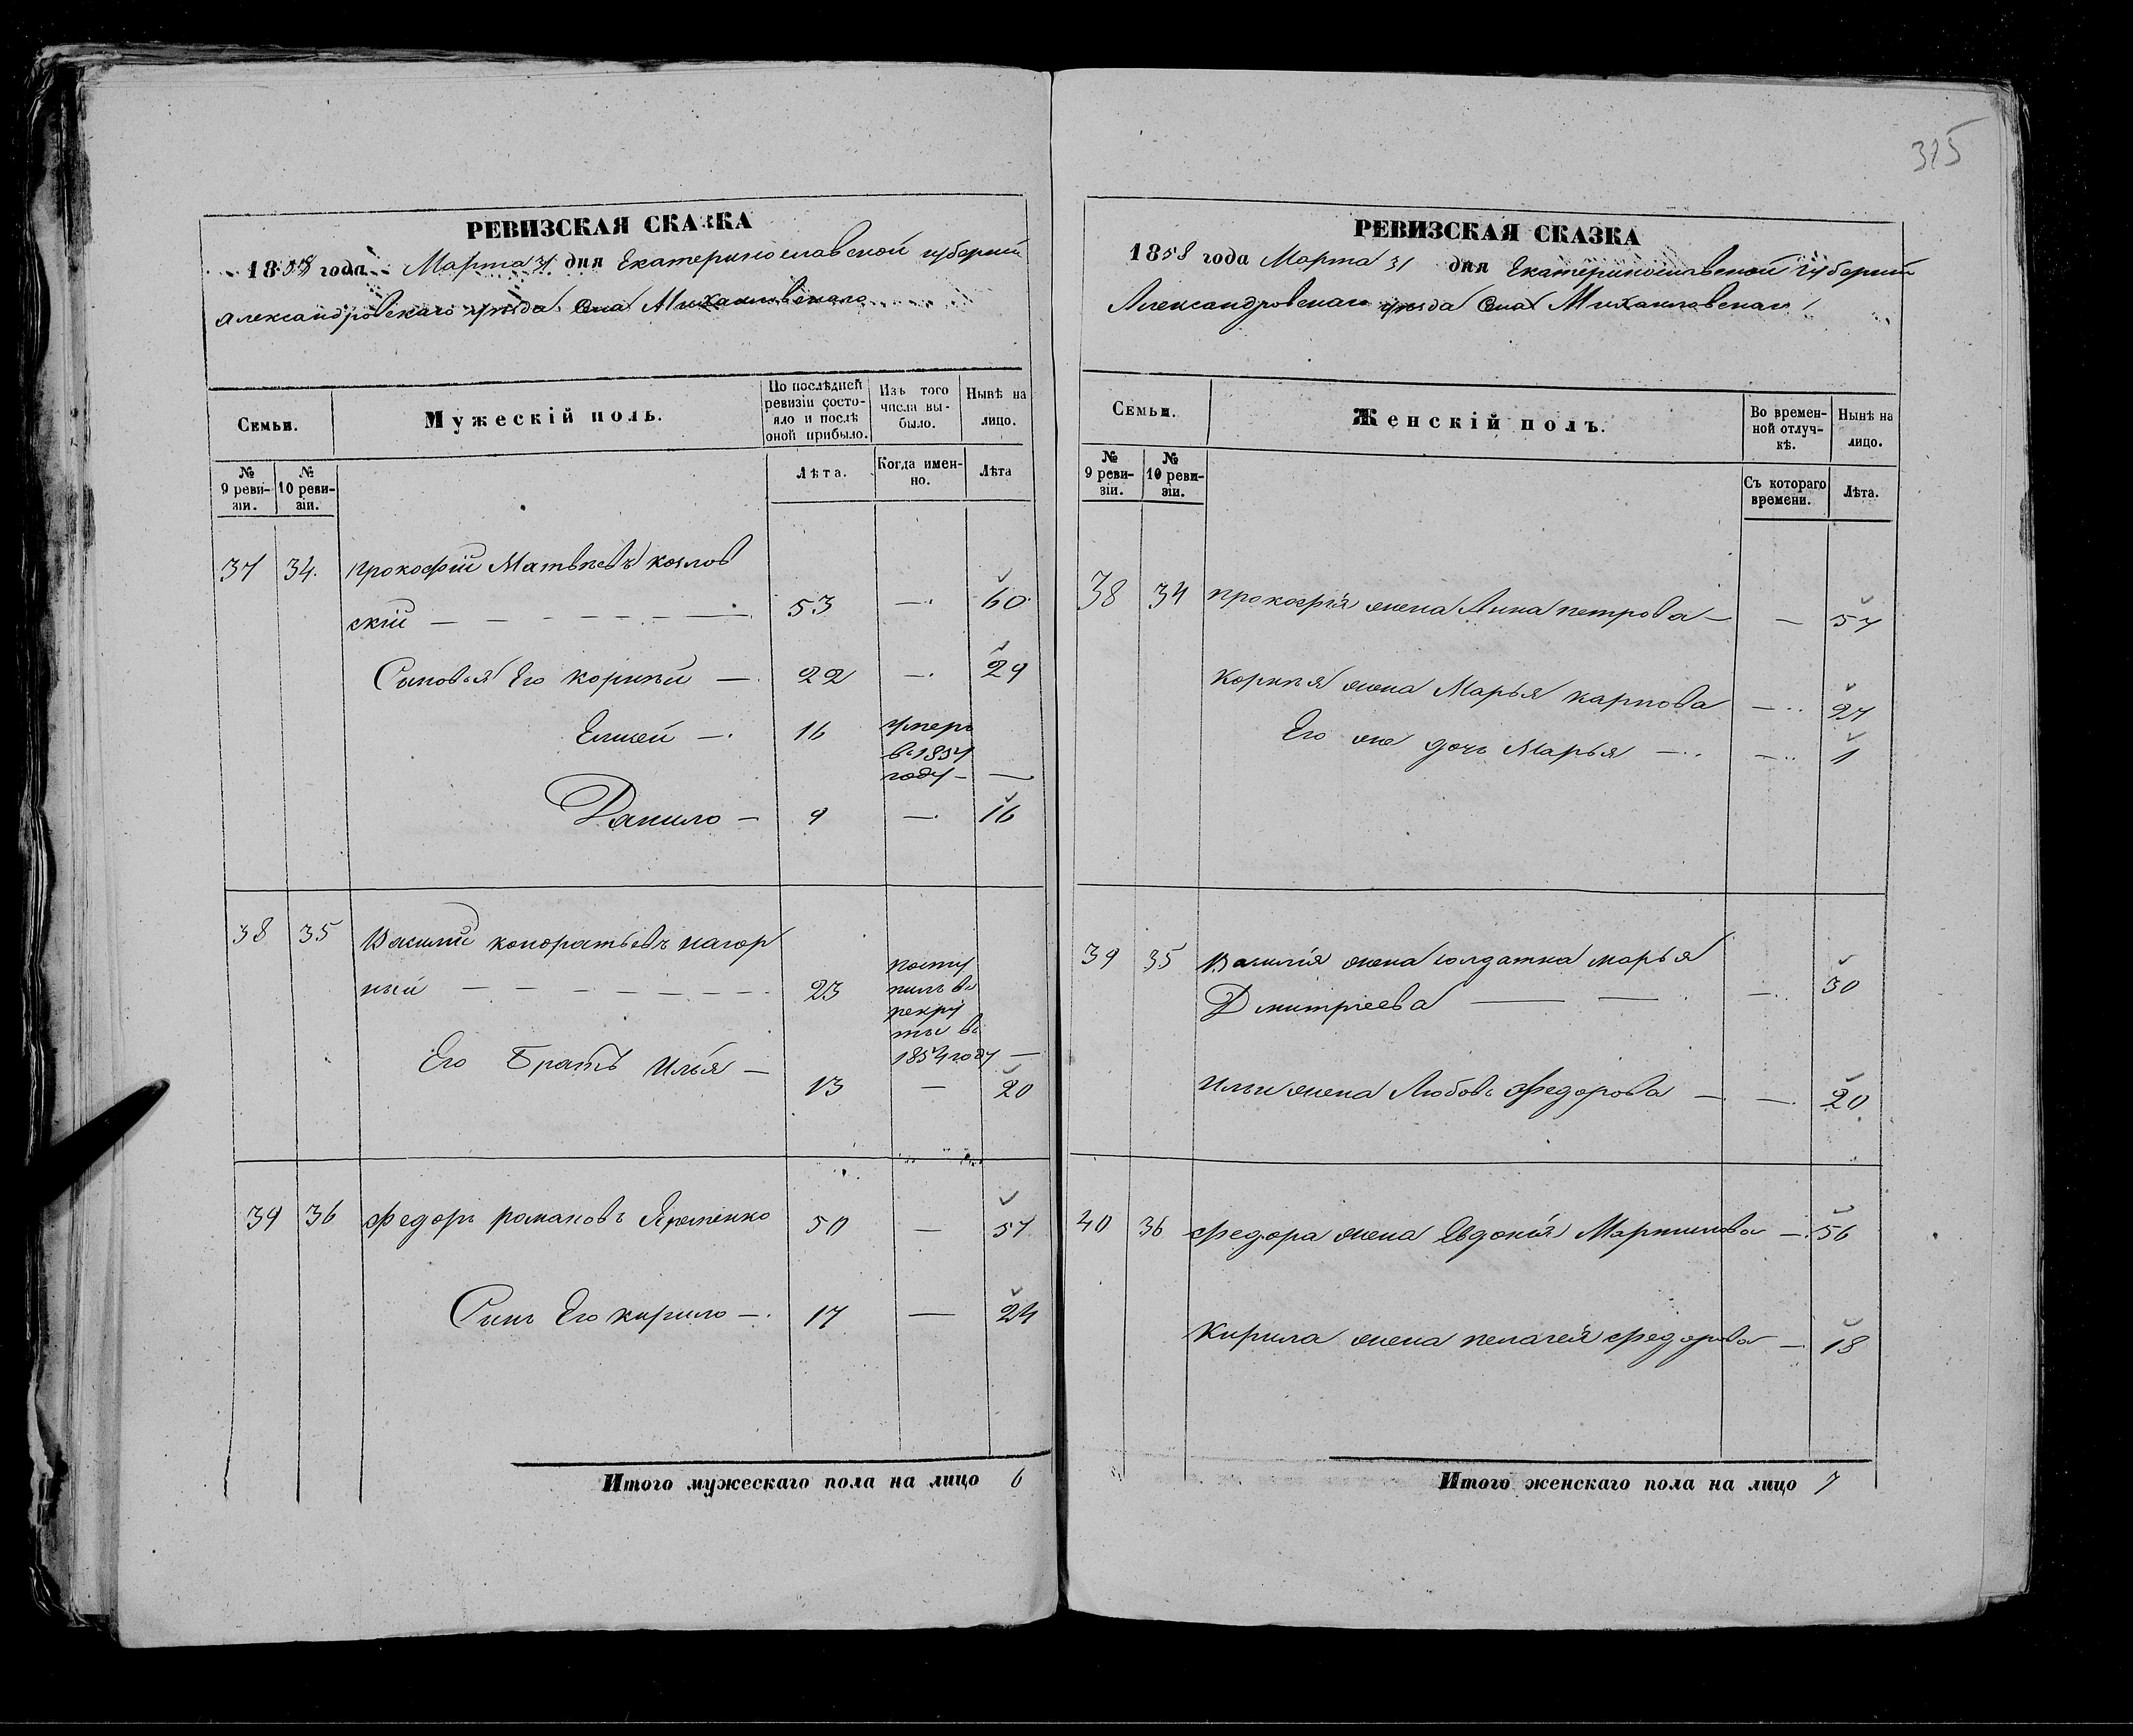 315
РЕВИЗСКАЯ СКАЗКА
1858 года Марта 31 дня Екатеринославской губернии
Александровскаго уѣзда Села Михайловскаго
Семьи.
Мужескій полъ.
По послѣдней ревизіи состояло и послѣ оной прибыло.
Изъ того числа выбыло.
Нынѣ на лицо.
№ 9 ревизіи.
№ 10 ревизіи.
Лѣта.
Когда именно.
Лѣта
37 34. прокофій Матвѣевъ козлов
скій — 53 — 60
Сыновья Его корнѣй — 22 — 29
Елисей — 16 умеръ
въ 1857
году — —
Данило — 9 — 16
38 35 Василій кондратьевъ нагор
ный — 23 посту
пилъ въ
рекру
ты въ
1854 году —
Его Братъ Илья — 13 — 20
39 36 федоръ романовъ Яременко 50 — 57
Сынъ Его кирило — 17 — 24
Итого мужескаго пола на лицо 6
РЕВИЗСКАЯ СКАЗКА
1858 года Марта 31 дня Екатеринославской Губернии
Александровскаго уѣзда Села Михайловскаго
Семьи.
Женскій полъ.
Во временной отлучкѣ.
Нынѣ на лицо.
№ 9 ревизіи.
№ 10 ревизіи.
Съ котораго времени.
Лѣта.
38 34 прокофія жена Анна петрова — — 57
корнѣя жена Марья карпова — 27
Его же дочь Марья — — 1
39 35 Василія жена солдатка марья
Дмитріева — — 30
Ильи жена Любовь федорова — — 20
40 36 федора жена Евдокія Мартинова — 56
Кирила жена пелагея федорова — 18
Итого женскаго пола на лицо 7